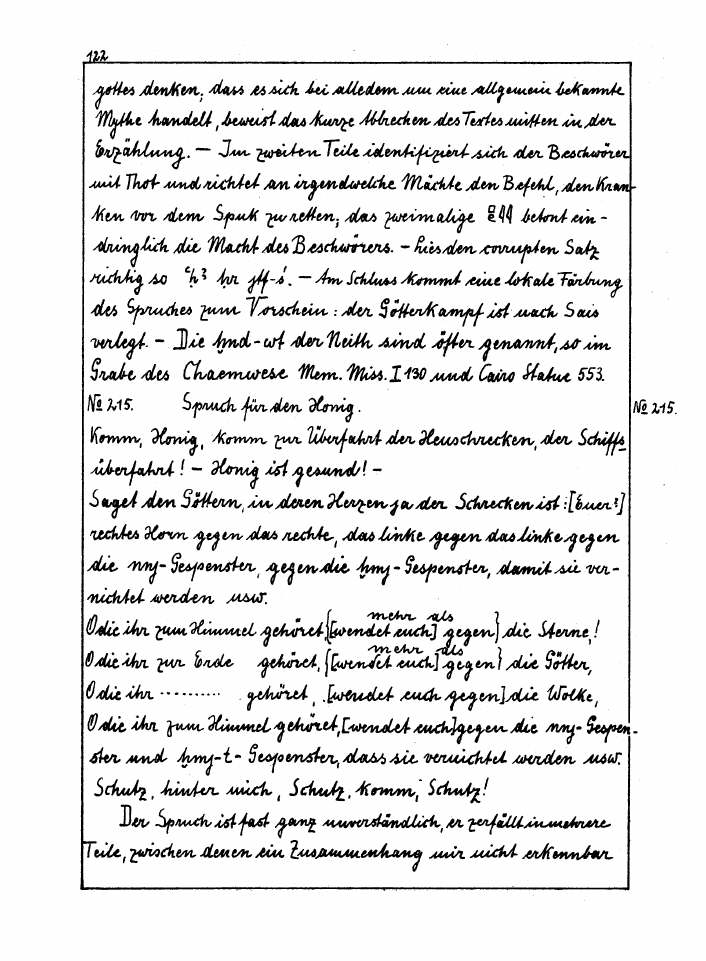 122
gottes denken; dass es sich bei alledem um eine allgemein bekannte
Mythe handelt, beweist das kurze Abbrechen des Textes mitten in der
Erzählung. — Im zweiten Teile identifiziert sich der Beschwörer
mit Thot und richtet an irgendwelche Mächte den Befehl, den Kran-
ken vor dem Spuk zu retten; das zweimalige betont ein-
dringlich die Macht des Beschwörers. - lies den corrupten Satz
richtig so ḥr — Am Schluss kommt eine lokale Färbung
des Spruches zum Vorschein: der Götterkampf ist nach Sais
verlegt. - Die ḫnd-wt der Neith sind öfter genannt, so im
Grabe des Chaemwese Mem. Miss. I 130 und Cairo Statue 553.
№ 215. Spruch für den Honig. № 215.
Komm, Honig, komm zur Überfahrt der Heuschrecken, der Schiffs
überfahrt! - Honig ist gesund! -
Saget den Göttern, in deren Herzen ja der Schrecken ist: [Euer?]
rechtes Horn gegen das rechte, das linke gegen das linke gegen
die nnj-Gespenster, gegen die ḫmj-Gespenster, damit sie ver-
nichtet werden usw.
mehr als
O die ihr zum Himmel gehöret, {[wendet euch] gegen} die Sterne,!
mehr als
O die ihr zur Erde gehöret, {[wendet euch] gegen} die Götter,
O die ihr .......... gehöret, [wendet euch gegen] die Wolke,
O die ihr zum Himmel gehöret, [wendet euch] gegen die nnj-Gespen-
ster und ḫmj-t-Gespenster, dass sie vernichtet werden usw.
Schutz, hinter mich, Schutz, komm, Schutz!
Der Spruch ist fast ganz unverständlich, er zerfällt in mehrere
Teile, zwischen denen ein Zusammenhang mir nicht erkennbar